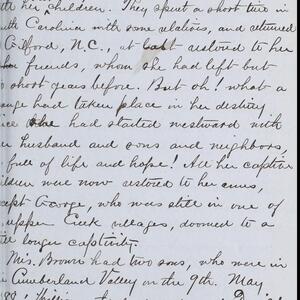 her children. They spent a short time in
Carolina with some relations, and returned
Gilford, N.C., at last restored to her
friends, whom she had left but
short years before. But oh! what a
had taken place in her destiny
she had started westward with
husband and sons and neighbors,
full of life and hope! All her captive
were now restored to her arms,
George, who was still in one of
upper Creek villages, doomed to a
longer captivity.
Mrs. Brown had two sons, who were in
Cumberland Valley on the 9th. May